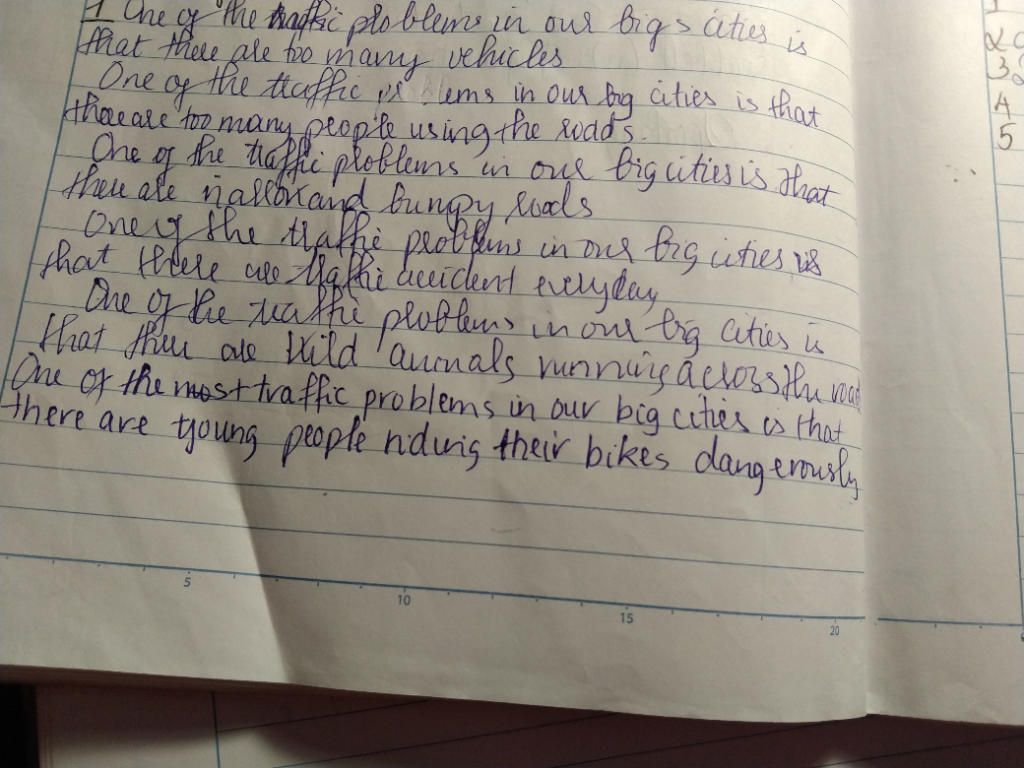 1 One of the traffic problems in our bigs cities is
that there are too many vehicles
One of the traffic pr lems in our big cities is that
there are too many people using the roads.
One of the traffic problems in our big cities is that
there are narrow and bumpy roads
One of the traffic problems in our big cities is
that there are traffic accident everyday
One of the traffic problems in our big cities is
that there are wild animals running across the road
One of the most traffic problems in our big cities is that
there are young people riding their bikes dangerously
5
10
15
20
1
2
3
4
5